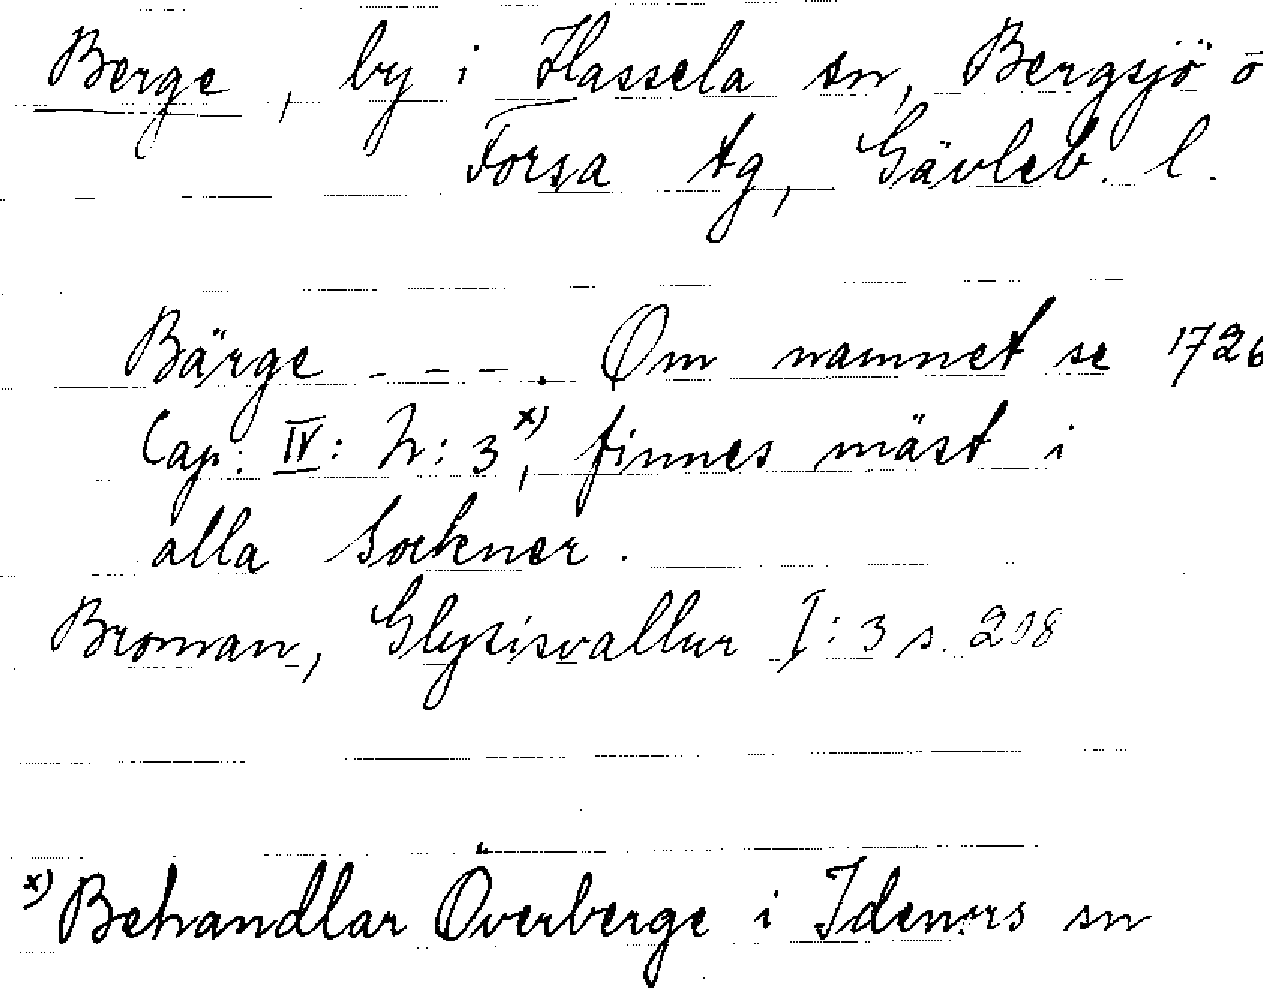 Berge, by i Hassela sn, Bergsjö o
Forsa tg, Gävleb. l.
Bärge - - - . Om namnet se 1726
Cap: IV: N: 3x), finnes mäst i
alla Sockner.
Broman, Glysisvallur I: 3 s. 208
x) Behandlar Överberge i Idenors sn